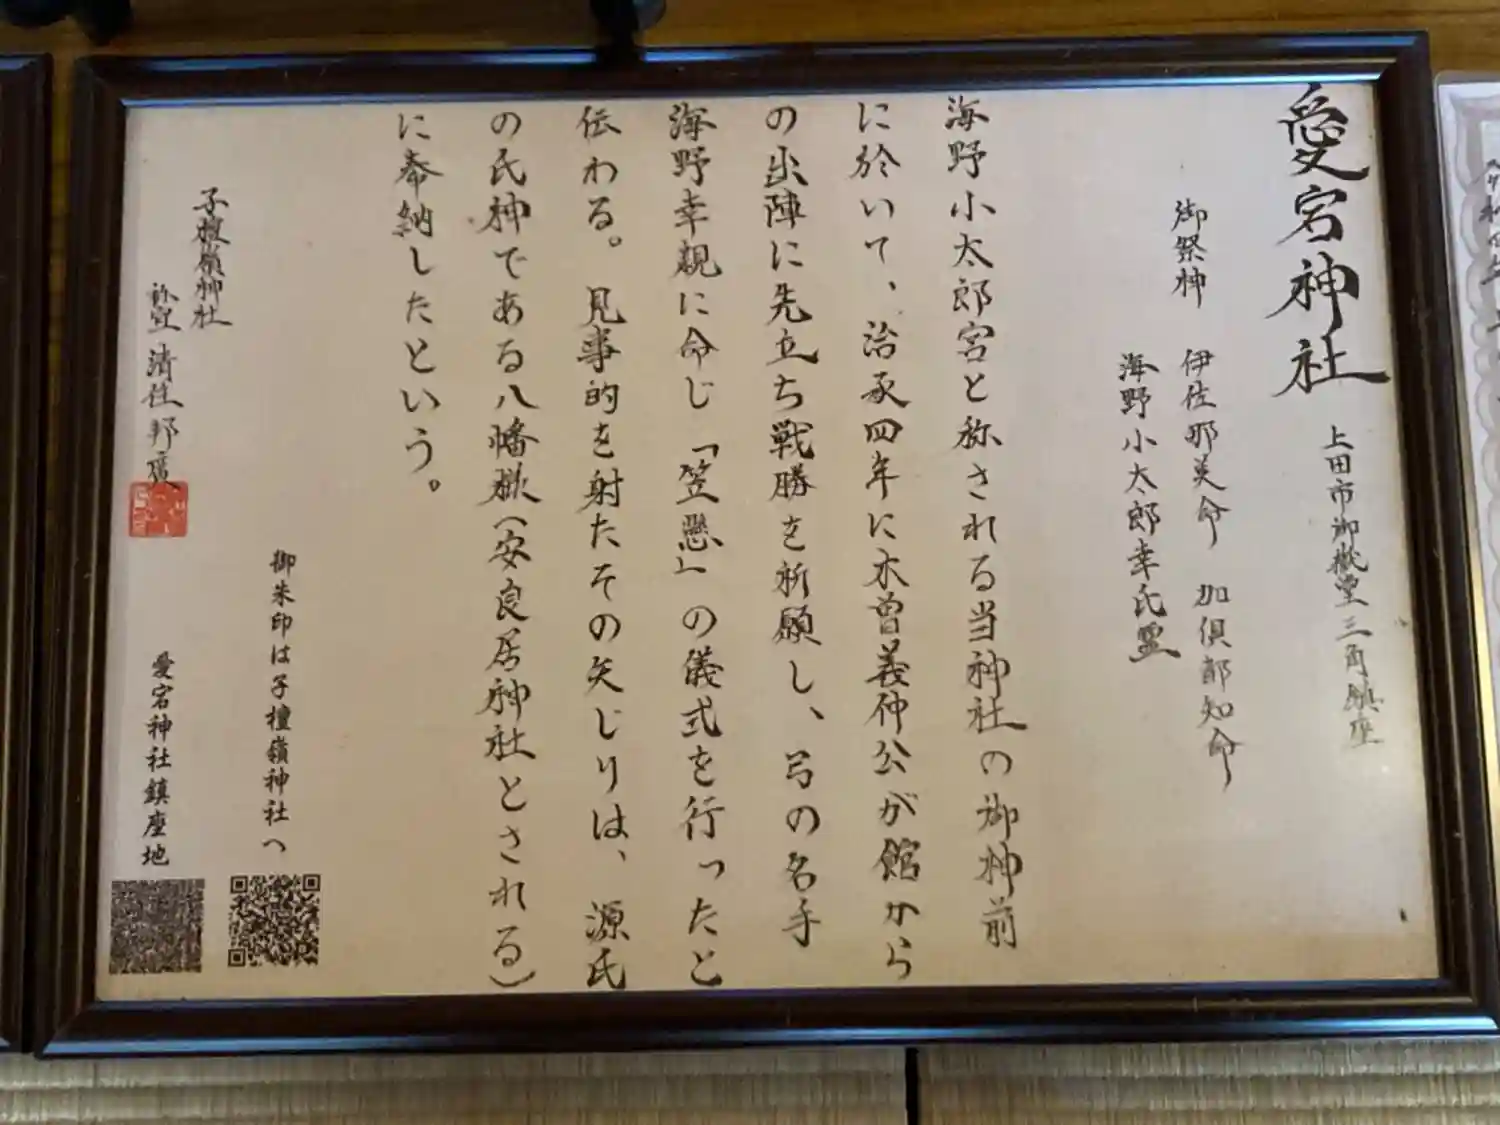 愛宕神社
上田市御嶽堂三角鎮座
御祭神 伊佐那美命 加倶部知命
海野小太郎幸氏霊
海野小太郎宮と称される当神社の御神前
に於いて、治承四年に木曽義仲公が館から
の出陣に先立ち戦勝を祈願し、弓の名手
海野幸親に命じ「笠懸」の儀式を行ったと
伝わる。見事的を射たその矢じりは、源氏
の氏神である八幡嶽(安良居神社とされる)
に奉納したという。
子檀嶺神社
祢宜 清住邦廣
御朱印は子檀嶺神社へ
愛宕神社鎮座地